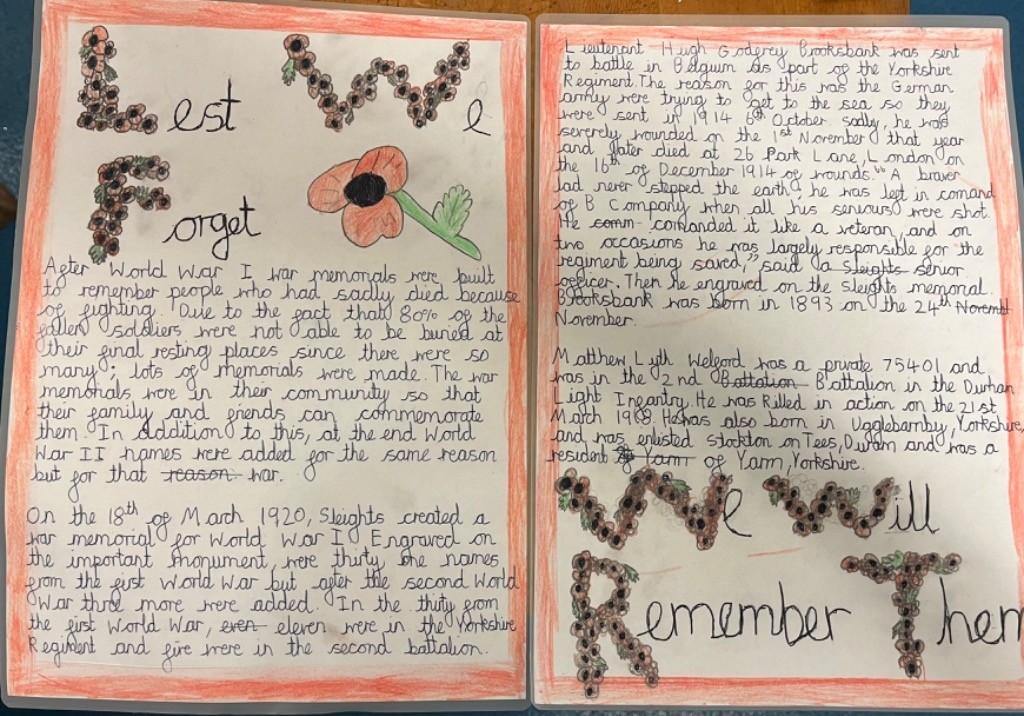 Lest We
Forget
After World War I war memorials were built
to remember people who had sadly died because
of fighting. Due to the fact that 80% of the
fallen soldiers were not able to be buried at
their final resting places since there were so
many; lots of memorials were made. The war
memorials were in their community so that
their family and friends can commemorate
them. In addition to this, at the end World
War II names were added for the same reason
but for that reason war.
On the 18th of March 1920, Sleights created a
war memorial for World War I. Engraved on
the important monument, were thirty one names
from the first World War but after the second World
War three more were added. In the thirty from
the first World War, even eleven were in the Yorkshire
Regiment and five were in the second battalion.
Lieutenant Hugh Goderey Brooksbank was sent
to battle in Belgium as part of the Yorkshire
Regiment. The reason for this was the German
army were trying to get to the sea so they
were sent in 1914 6th October sadly, he was
severely wounded on the 1st November that year
and later died at 26 Park Lane, London on
the 16th of December 1914 of wounds. "A braver
lad never stepped the earth, he was left in comand
of B Company when all his seniours were shot.
He comm comanded it like a veteran, and on
two occasions he was largely responsible for the
regiment being saved," said a Sleights senior
officer. Then he engraved on the sleights memorial.
Brooksbank was born in 1893 on the 24th Novembe
November.
Matthew Lyth Welford was a private 75401 and
was in the 2nd Battalion Battalion in the Durham
Light Infantry. He was killed in action on the 21st
March 1918. He was also born in Ugglebarnby, Yorkshire,
and was enlisted Stockton on Tees, Duram and was a
resident Yarm of Yarm, Yorkshire.
We Will
Remember Them